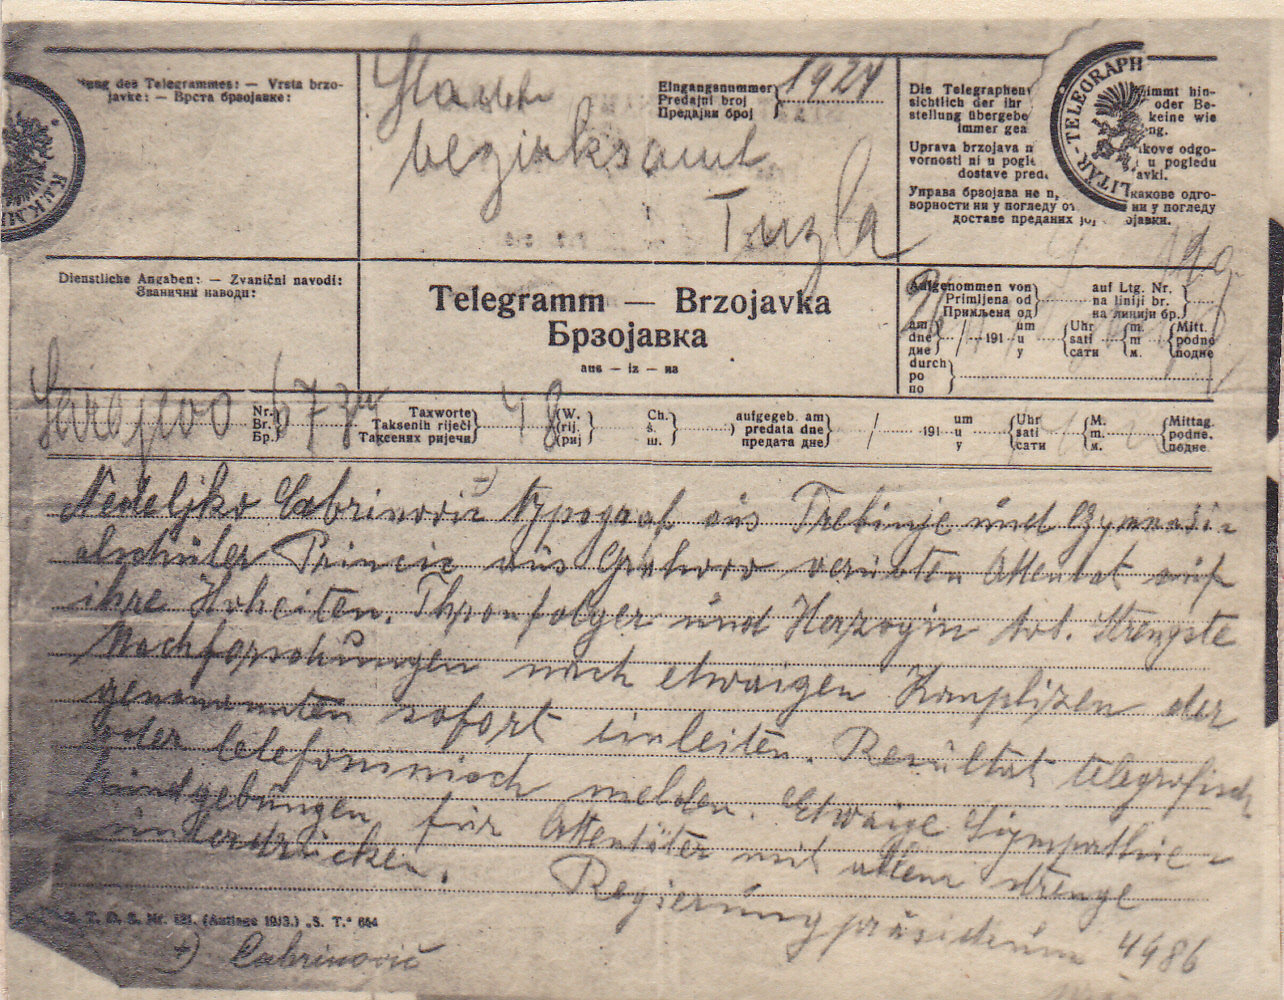 ung des Telegrammes: — Vrsta brzo-
javke: — Врста брзојавке:
Stadt
bezirksamt
Tuzla
Eingangsnummer
Predajni broj
Предајни број
1924
Die Telegraphen immt hin-
sichtlich der ihr oder Be-
stellung übergebe keine wie
immer gea ng.
Uprava brzojava n kove odgo-
vornosti ni u pogle u pogledu
dostave pred avki.
Управа брзојава не п какове одго-
ворности ни у погледу от ни у погледу
доставе преданих ојавки.
LITÄR-TELEGRAPH
K.u.K.MI
Dienstliche Angaben: — Zvanični navodi:
Званични наводи:
Telegramm — Brzojavka
Брзојавка
aus — iz — из
Aufgenommen von auf Ltg. Nr.
Primljena od na liniji br.
Примљена од на линији бр.
am um Uhr m. Mitt.
dne / 191 u sati m podne
дне у сати м. подне
durch
po
по
Sarajevo Nr. Br. Бр. 67 Taxworte Taksenih riječi Таксених ријечи 48 (W. (rij. (риј Ch. š. ш. aufgegeb. am predata dne предата дне / 191 um u у Uhr sati сати M. m. м. Mittag. podne. подне.
Nedeljko Cabrinović +) Typograf aus Trebinje und Gymnasi-
alschüler Princip aus Grahovo verübten Attentat auf
ihre Hoheiten. Thronfolger und Herzogin tot. Strengste
Nachforschungen nach etwaigen Komplizen der
genannten sofort einleiten. Resultat telegrafisch
oder telefonnisch melden. Etwaige Sympathie-
kundgebungen für Attentäter mit allem strenge
unterdrücken.
Regierungpräsidium 4986
T. D. S. Nr. 121. (Auflage 1913.) „S. T.“ 644
+) Cabrinović